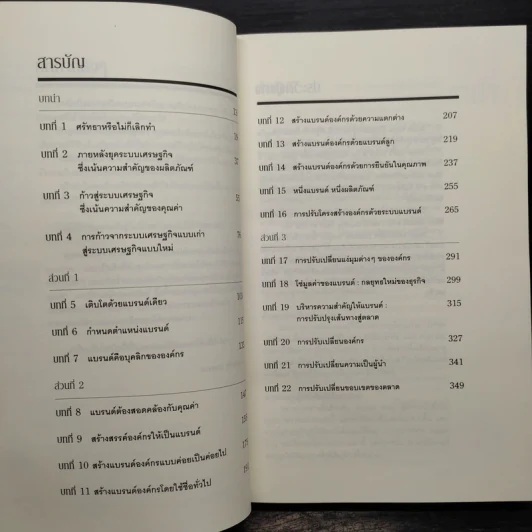 สารบัญ
บทนำ
บทที่ 1 ศรัทธาหรือไม่ก็เลิกทำ
บทที่ 2 ภายหลังยุคระบบเศรษฐกิจ
ซึ่งเน้นความสำคัญของผลิตภัณฑ์
บทที่ 3 ก้าวสู่ระบบเศรษฐกิจ
ซึ่งเน้นความสำคัญของคุณค่า
บทที่ 4 การก้าวจากระบบเศรษฐกิจแบบเก่า
สู่ระบบเศรษฐกิจแบบใหม่
ส่วนที่ 1
บทที่ 5 เติบโตด้วยแบรนด์เดียว
บทที่ 6 กำหนดตำแหน่งแบรนด์
บทที่ 7 แบรนด์คือบุคลิกขององค์กร
ส่วนที่ 2
บทที่ 8 แบรนด์ต้องสอดคล้องกับคุณค่า
บทที่ 9 สร้างสรรค์องค์กรให้เป็นแบรนด์
บทที่ 10 สร้างแบรนด์องค์กรแบบค่อยเป็นค่อยไป
บทที่ 11 สร้างแบรนด์องค์กรโดยใช้ชื่อทั่วไป
บทที่ 12 สร้างแบรนด์องค์กรด้วยความแตกต่าง 207
บทที่ 13 สร้างแบรนด์องค์กรด้วยแบรนด์ลูก 219
บทที่ 14 สร้างแบรนด์องค์กรด้วยการยืนยันในคุณภาพ 237
บทที่ 15 หนึ่งแบรนด์ หนึ่งผลิตภัณฑ์ 255
บทที่ 16 การปรับโครงสร้างองค์กรด้วยระบบแบรนด์ 265
ส่วนที่ 3
บทที่ 17 การปรับเปลี่ยนแง่มุมต่างๆ ขององค์กร 291
บทที่ 18 โซ่มูลค่าของแบรนด์ : กลยุทธใหม่ของธุรกิจ 299
บทที่ 19 บริหารความสำคัญให้แบรนด์ : 315
การปรับปรุงเส้นทางสู่ตลาด
บทที่ 20 การปรับเปลี่ยนองค์กร 327
บทที่ 21 การปรับเปลี่ยนความเป็นผู้นำ 341
บทที่ 22 การปรับเปลี่ยนขอบเขตของตลาด 349